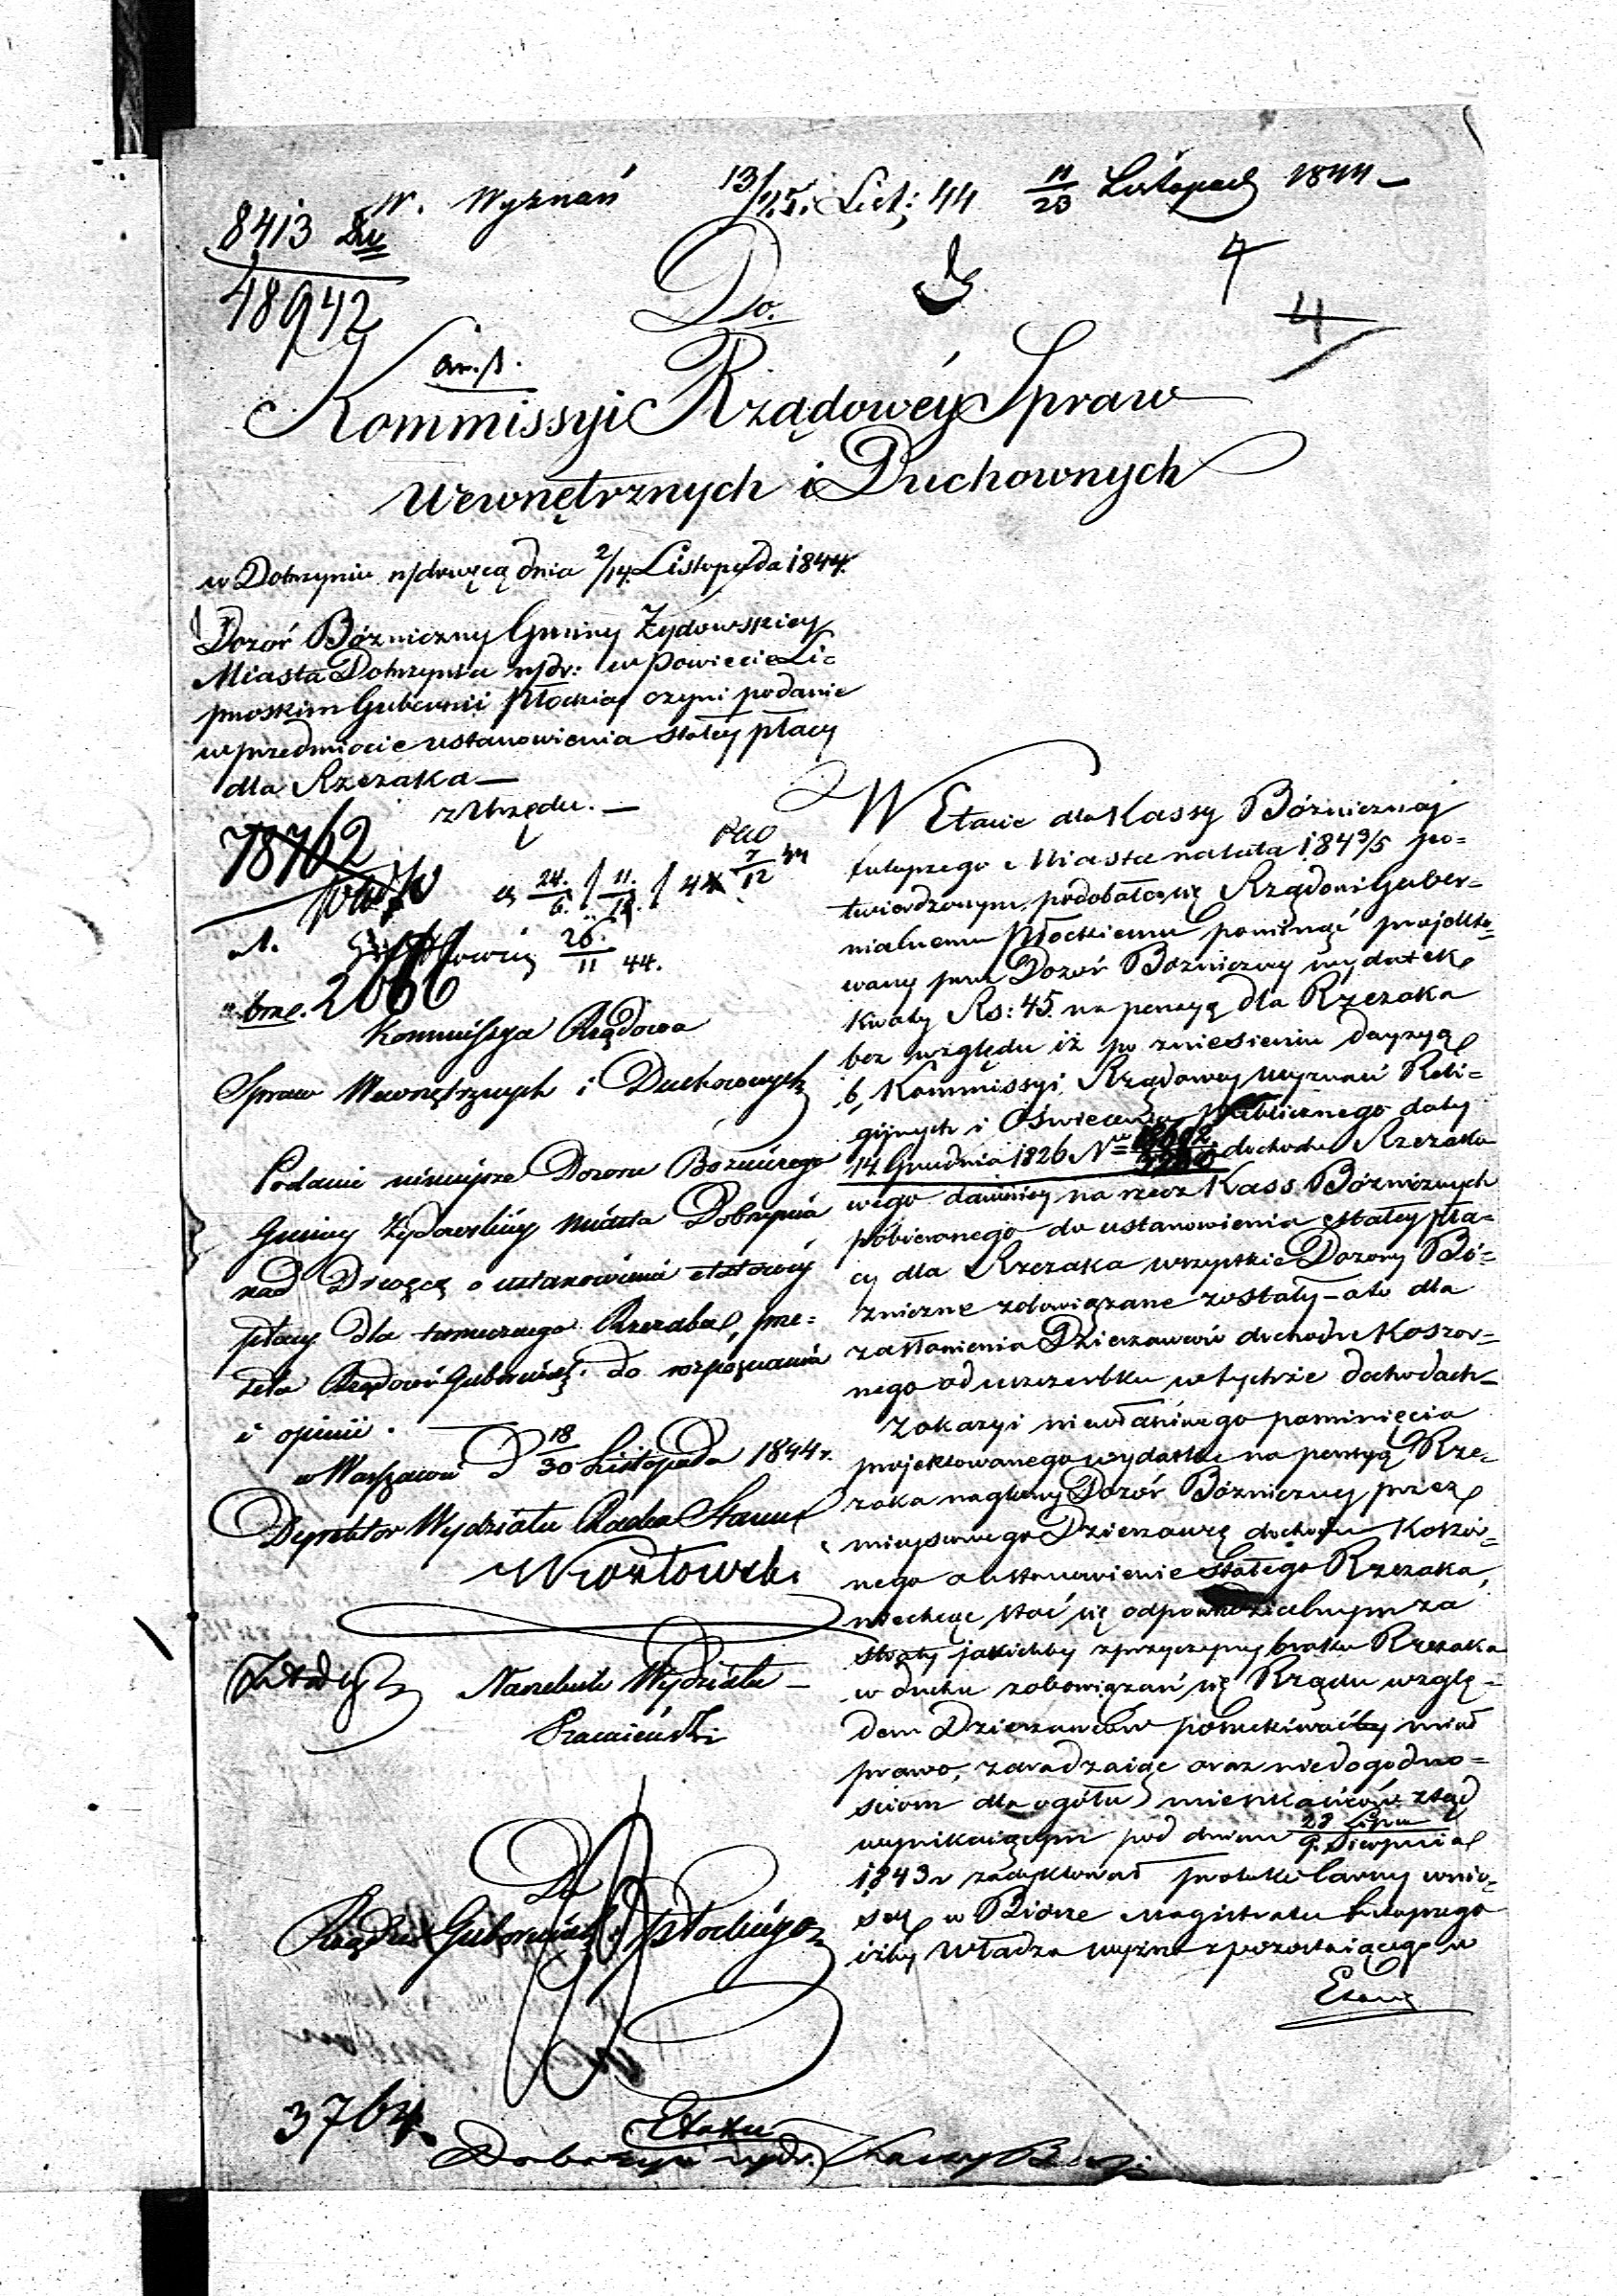 W. Wyznań 13/25 List: 44 11/23 Listopad 1844 –
8413
48942
Do.
4
4
Kommissyi Rządowéy Spraw
Wewnętrznych i Duchownych
w Dobrzyniu n/drwęcą dnia 2/14. Listopada 1844.
Dozór Bózniczny Gminy Żydowskiey
Miasta Dobrzynia n/dr: w Powiecie Li=
pnoskim Gubernii Płockiey czyni podanie
w przedmiocie ustanowienia stałey płacy
dla Rzezaka –
z Urzędu. –
78762
26/11 44.
2066
Kommissya Rządowa
Spraw Wewnętrznych i Duchownych
Podanie ninieysze Dozoru Bozniczego
Gminy Żydowskiéy Miasta Dobrzynia
nad Drwęcą o ustanowienie etatowéy
płacy dla tamecznego Rzezaka, prze=
syła Rządowi Gubernial: do rozpoznania
i opinii.
w Warszawie D 18/30 Listopada 1844 r.
Dyrektor Wydziału Radca Stanu
Naczelnik Wydziału –
Do
Rządu Gubernial: Płockiego
3764
W Etacie dla Kassy Bózniczney
tuteyszego Miasta na lata 1843/5 po=
twierdzonym, podobało się Rządowi Guber=
nialnemu Płockiemu pominąć projekto=
wany przez Dozór Bozniczny wydatek
kwoty Rs: 45. na pensyą dla Rzezaka
bez względu iż po zniesieniu decyzyą
b. Kommissyi Rządowey Wyznań Reli=
gijnych i Oświecenia Publicznego daty
14 Grudnia 1826 N= dochodu Rzezako
wego dawniey na rzecz Kass Bózniczych
pobieranego do ustanowienia stałey pła=
cy dla Rzezaka wszystkie Dozory Bó=
zniczne zobowiązane zostały – a to dla
zasłonienia Dzierzawców dochodu Koszer=
nego od uszczerbku w tychże dochodach –
Z okazyi niewłaściwego pominięcia
projektowanego wydatku na pensyą Rze=
zaka naglony Dozór Bózniczny przez
mieyscowego Dzierzawcę dochodu Koszer=
nego o ustanowienie Stałego Rzezaka,
niechcąc stać się odpowiedzialnym za
straty jakichby z przyczyny braku Rzezaka
w duchu zobowiązań się Rządu wzglę=
dem Dzierzawców poszukiwać miał
prawo, zaradzaiąc oraz niedogodno=
ściom dla ogółu mieszkańców ztąd
wynikaiącym pod dniem 28 Lipca / 9. Sierpnia
1843 r zadyktował protokólarny wnio=
sek w Biorze Magistratu tutejszego
iżby Władza wyższa z pozostaiącego w
Etacie
Etatu
Dobrzyn n/dr. Kassy